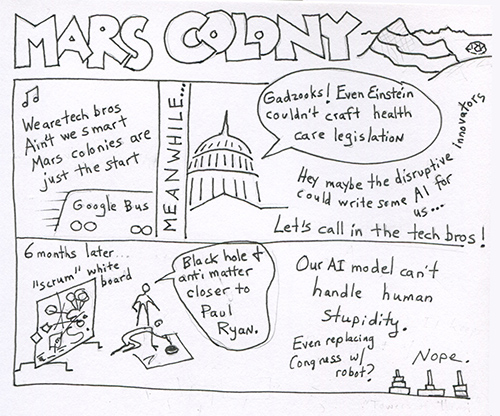 MARS COLONY
We are tech bros
Ain't we smart
Mars colonies are
just the start
Google Bus
MEANWHILE...
Gadzooks! Even Einstein
couldn't craft health
care legislation
Hey maybe the disruptive innovators
could write some AI for
us...
Let's call in the tech bros!
6 months later...
"scrum" white
board
Black hole &
anti matter
closer to
Paul
Ryan.
Our AI model can't
handle human
Stupidity.
Even replacing
Congress w/
robot?
Nope.